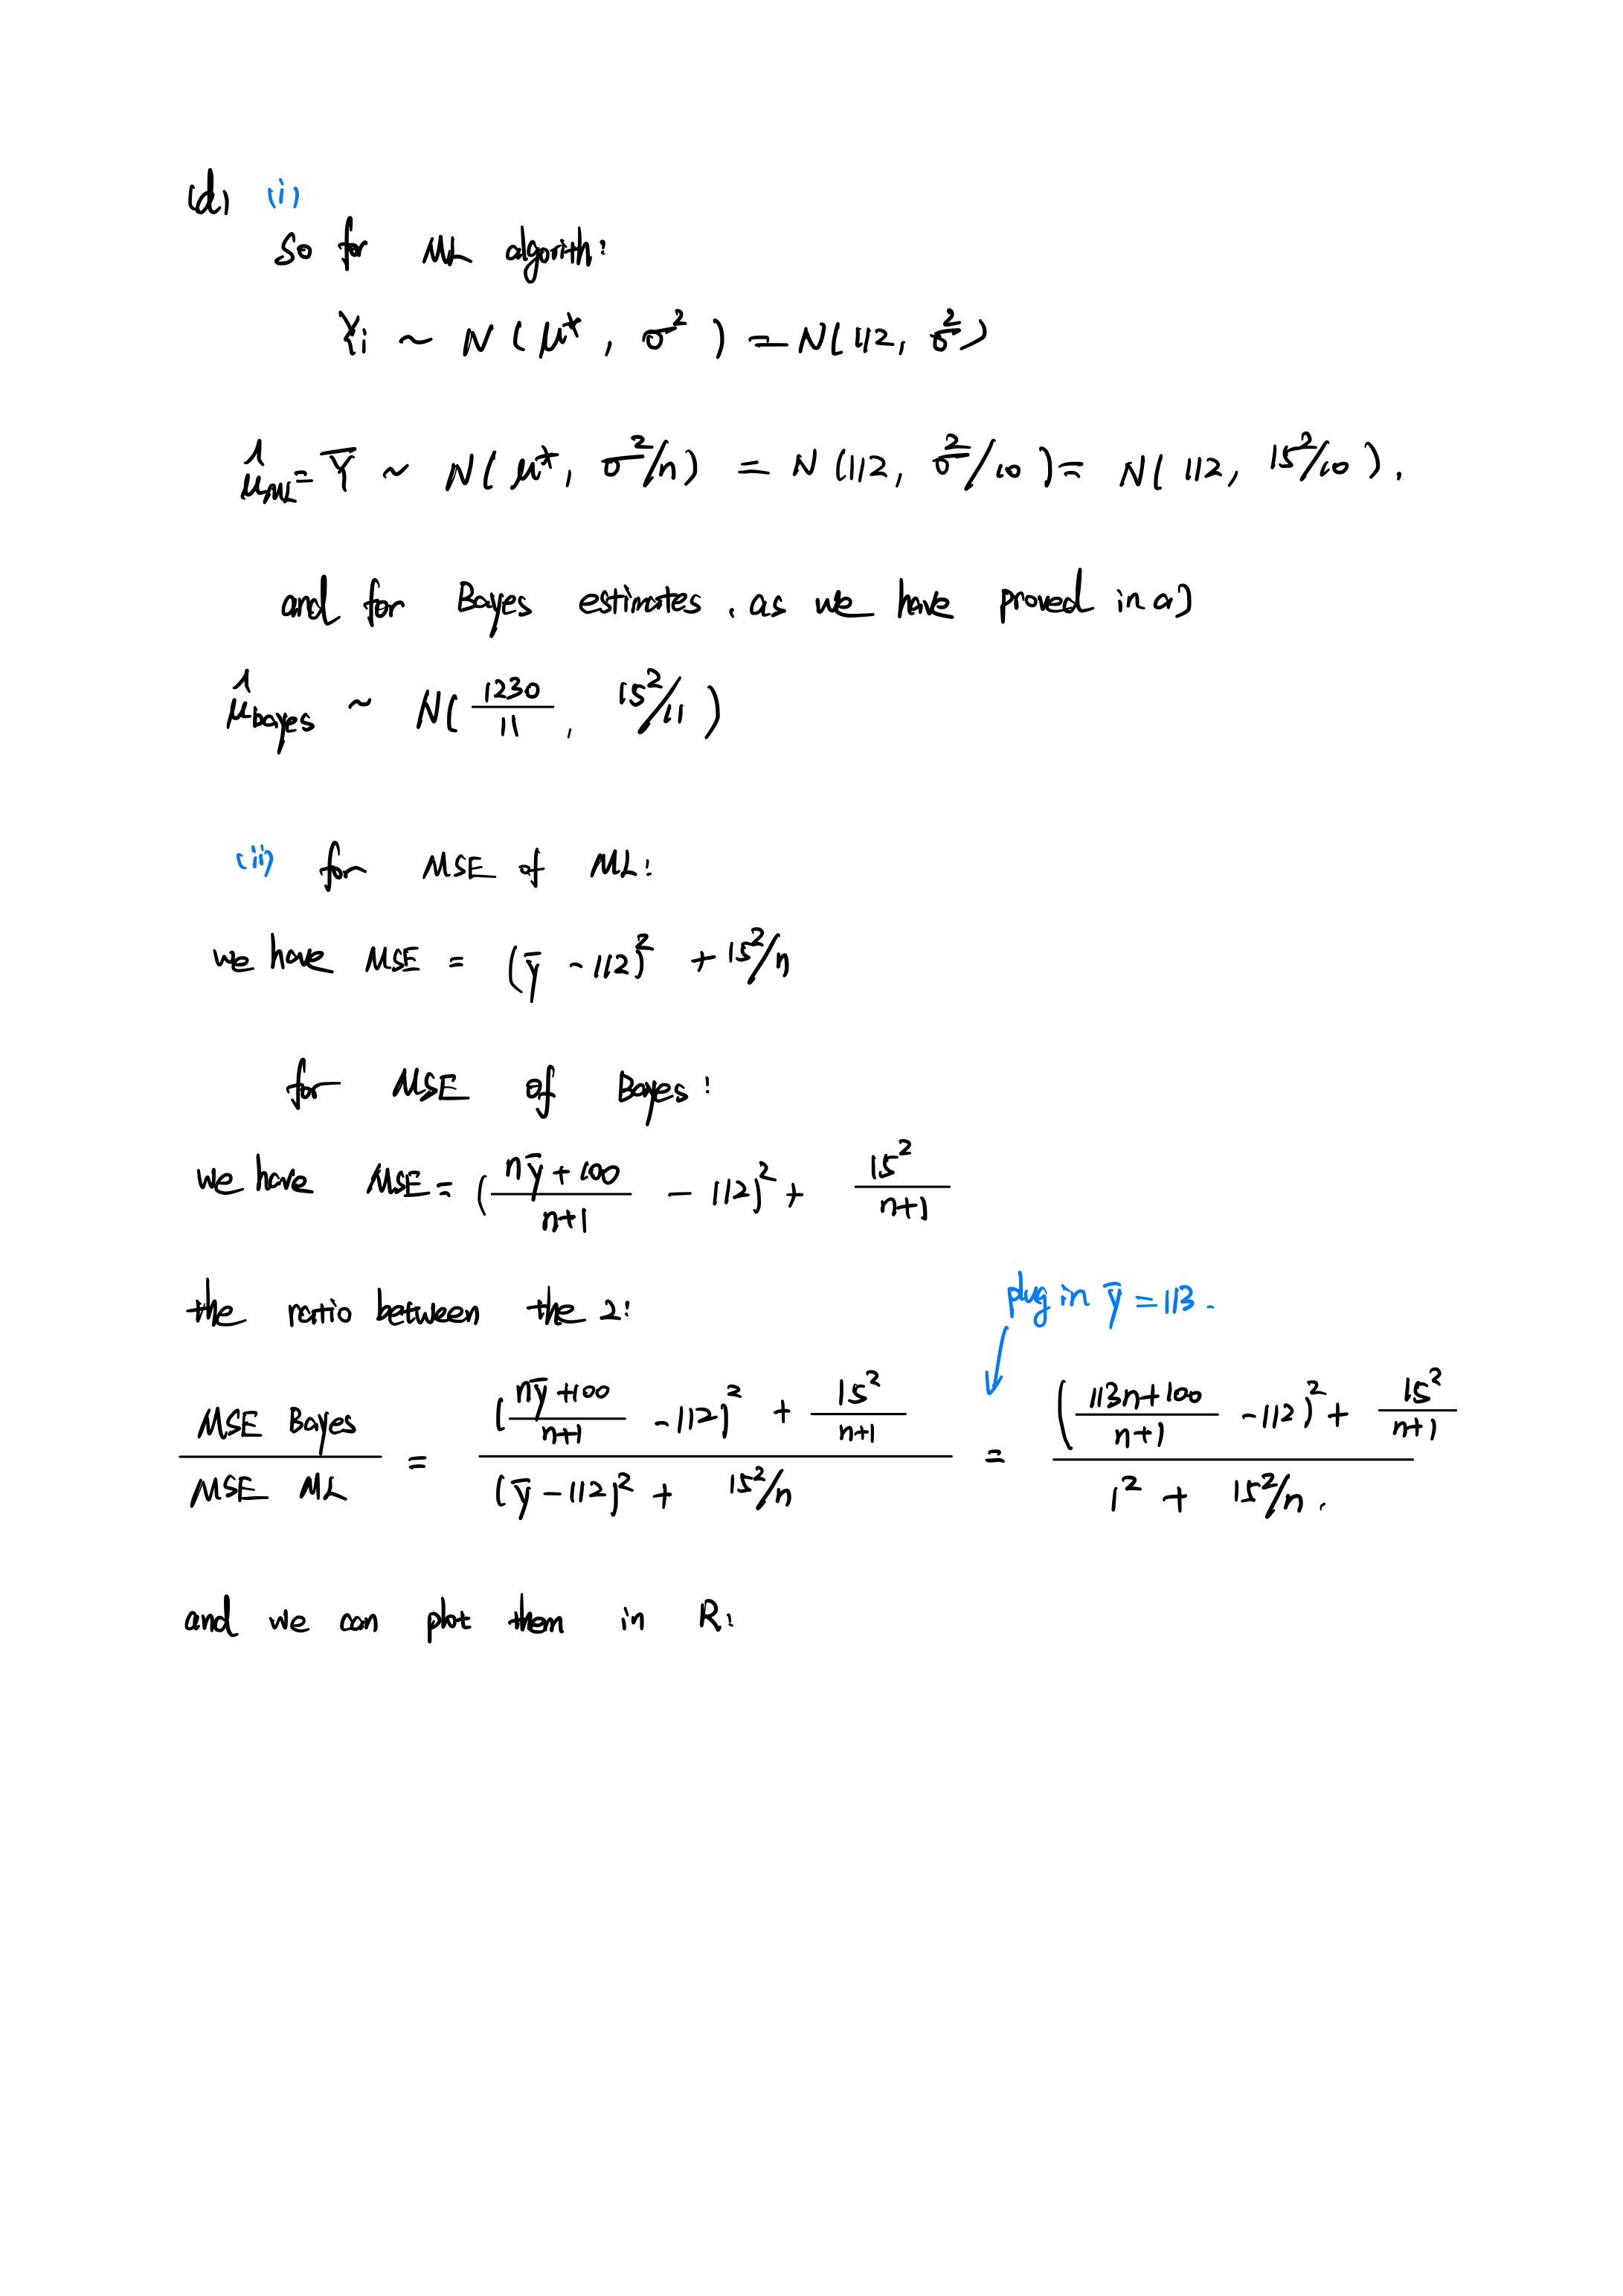 (d) (i)
So for ML algorith:
Yi ~ N(μ*, σ²) = N(112, σ²)
μ̂ML = Ȳ ~ N(μ*, σ²/n) = N(112, σ²/10) = N(112, 15²/10).
and for Bayes estimates, as we have proved in a)
μ̂bayes ~ N(1230/11, 15²/11)
(ii) for MSE of ML:
we have MSE = (ȳ - 112)² + 15²/n
for MSE of Bayes:
we have MSE = ((nȳ+100)/(n+1) - 112)² + 15²/(n+1)
the ratio between the 2:
plug in ȳ = 113.
MSE Bayes / MSE ML = (((nȳ+100)/(n+1) - 112)² + 15²/(n+1)) / ((ȳ-112)² + 15²/n) = (((113n+100)/(n+1) - 112)² + 15²/(n+1)) / (1² + 15²/n).
and we can plot them in R: